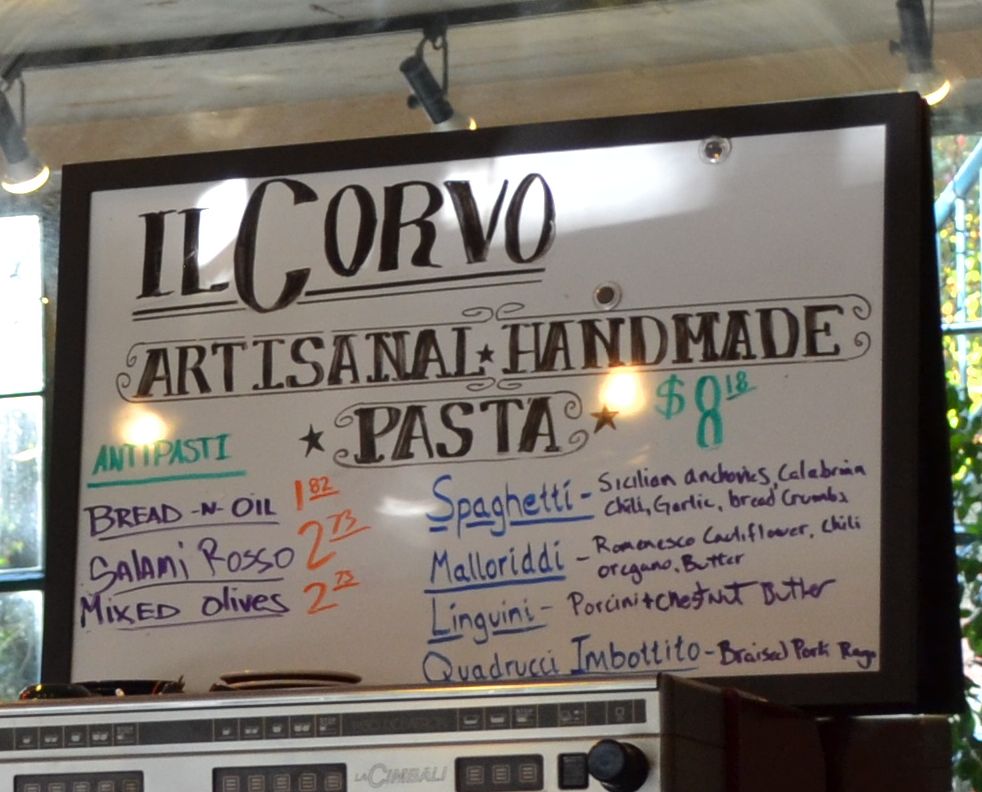 IL CORVO
ARTISANAL ★ HANDMADE
★ PASTA ★ $8 18
ANTIPASTI
BREAD -N- OIL 1 82
SALAMI ROSSO 2 73
MIXED OLIVES 2 73
Spaghetti - Sicilian anchovies, Calabrian
Chili, Garlic, bread Crumbs
Malloriddi - Romenesco Cauliflower, Chili
oregano, Butter
Linguini - Porcini + Chestnut Butter
Quadrucci Imbottito - Braised Pork Ragu
LA CIMBALI